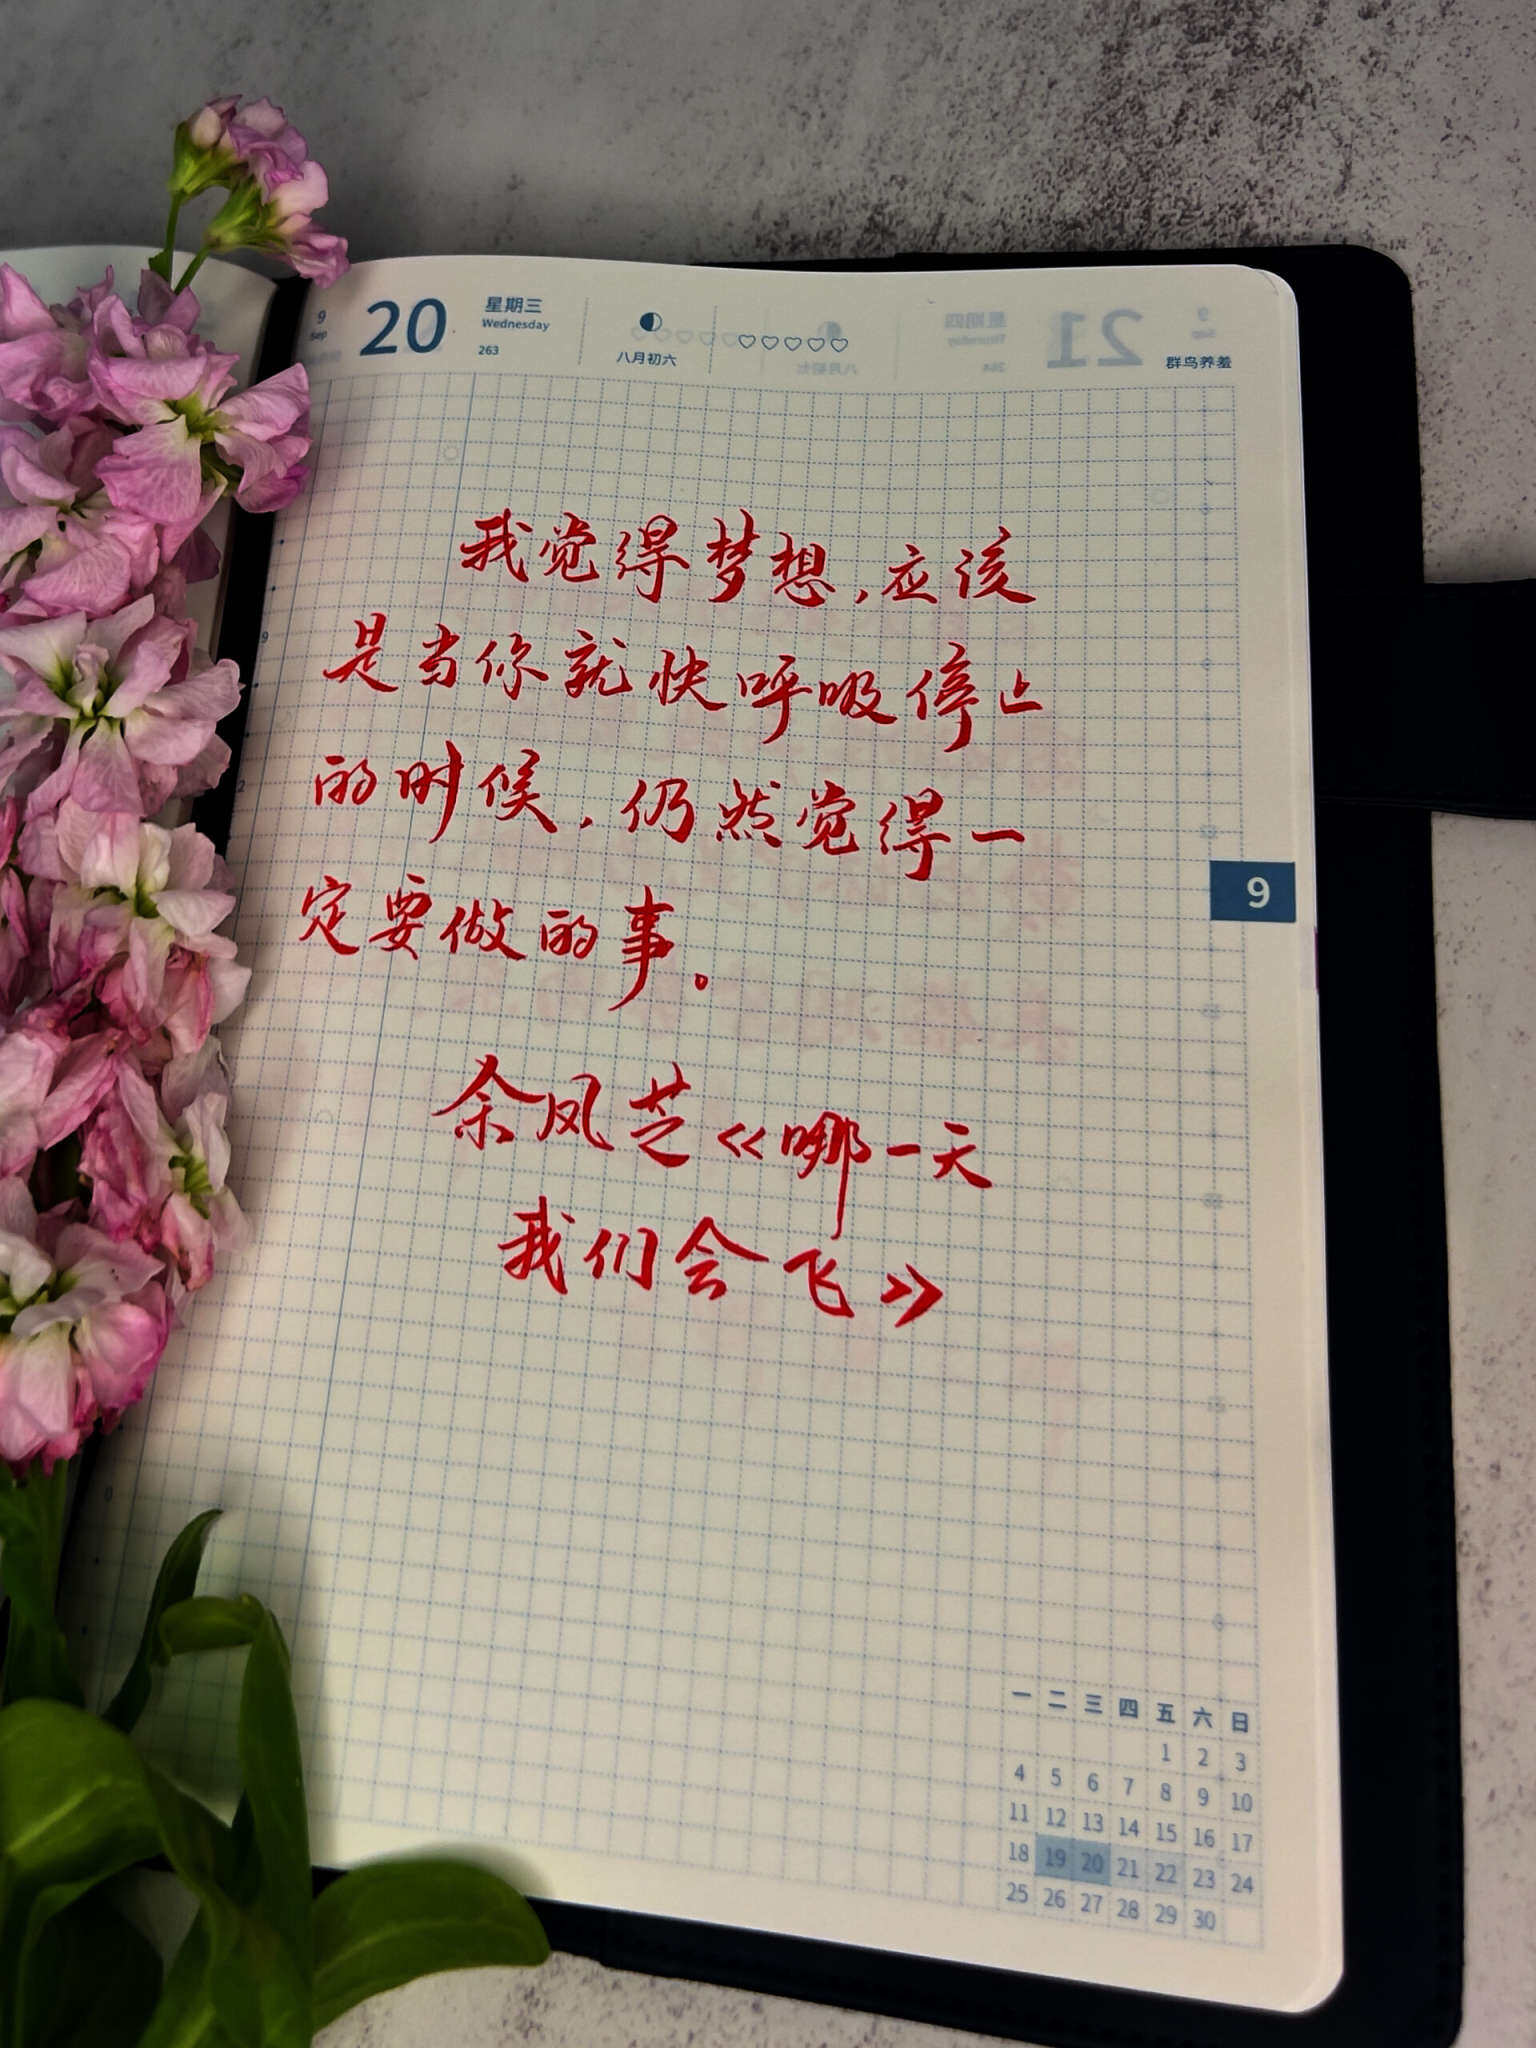 9
Sep
20
星期三
Wednesday
263
八月初六
群鸟养羞
我觉得梦想,应该
是当你就快呼吸停止
的时候,仍然觉得一
定要做的事。
余凤芝《哪一天
我们会飞》
9
一 二 三 四 五 六 日
1 2 3
4 5 6 7 8 9 10
11 12 13 14 15 16 17
18 19 20 21 22 23 24
25 26 27 28 29 30